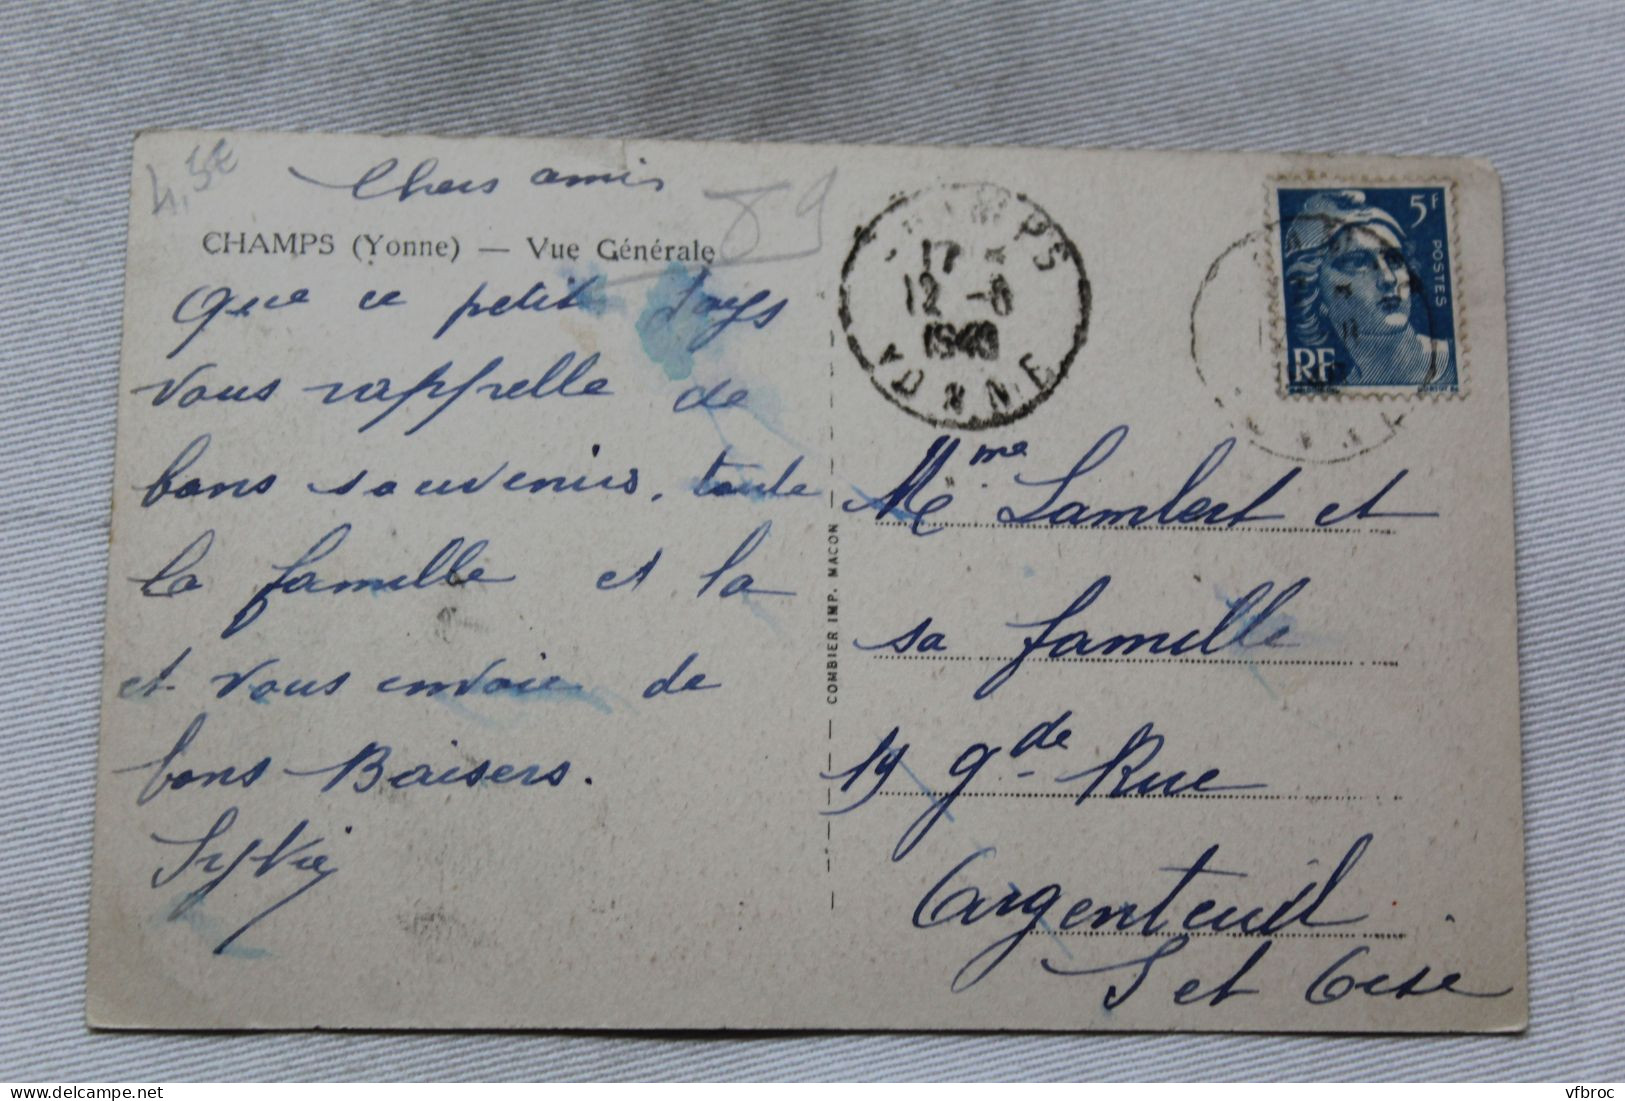 4,5€
Chers amis
89
CHAMPS (Yonne) — Vue Générale
Que ce petit pays
vous rappelle de
bons souvenirs. toute
la famille et la
et vous envoie de
bons Baisers.
Sylvie
COMBIER IMP. MACON
CHAMPS
17
12 -8
1949
YONNE
5F
POSTES
RF
Mme Lambert et
sa famille
19 gde Rue
Argenteuil
S et Oise
vfbroc